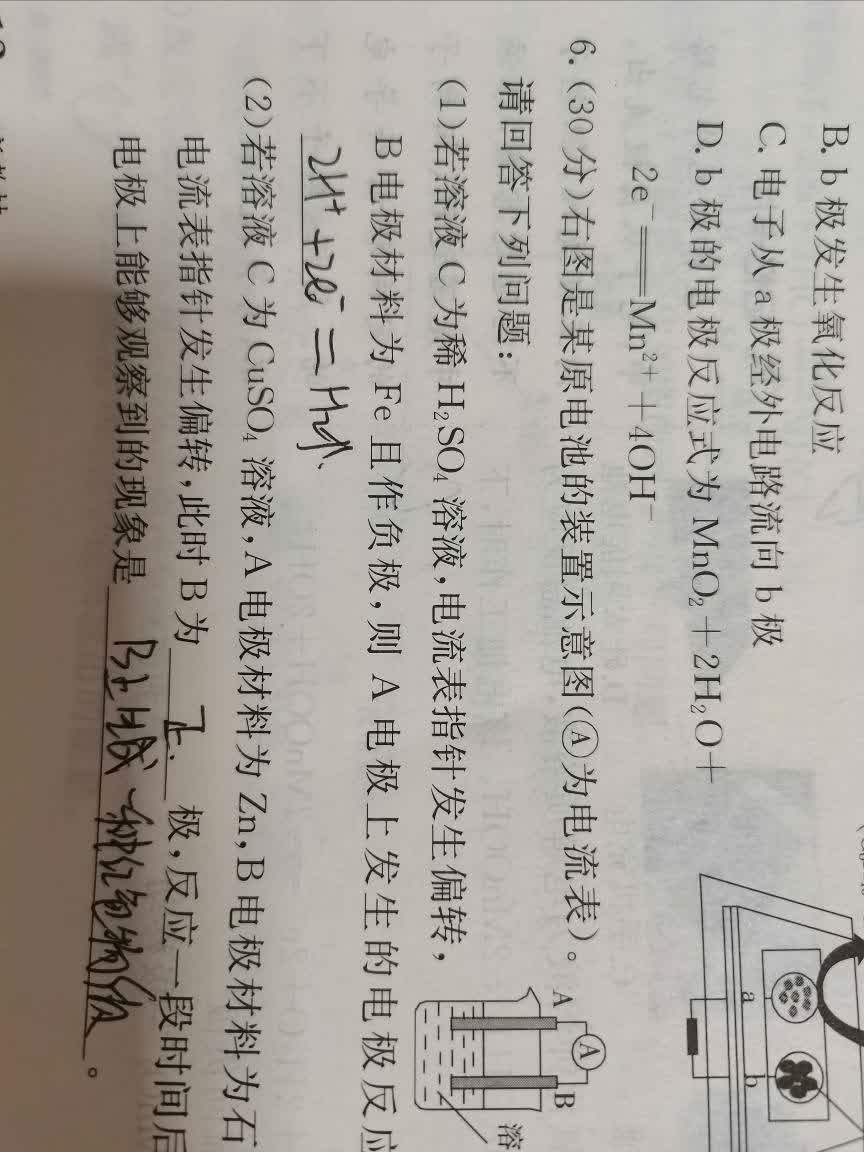 B. b 极发生氧化反应
C. 电子从 a 极经外电路流向 b 极
D. b 极的电极反应式为 MnO₂＋2H₂O＋
2e⁻══Mn²⁺＋4OH⁻
a
b
6. (30 分)右图是某原电池的装置示意图(Ⓐ为电流表)。
请回答下列问题:
A
A
B
溶
(1)若溶液 C 为稀 H₂SO₄ 溶液,电流表指针发生偏转,
B 电极材料为 Fe 且作负极,则 A 电极上发生的电极反应
2H⁺+2e⁻=H₂↑.
(2)若溶液 C 为 CuSO₄ 溶液,A 电极材料为 Zn,B 电极材料为石
电流表指针发生偏转,此时 B 为 正. 极,反应一段时间后
电极上能够观察到的现象是 B上出现一种红色物质 。